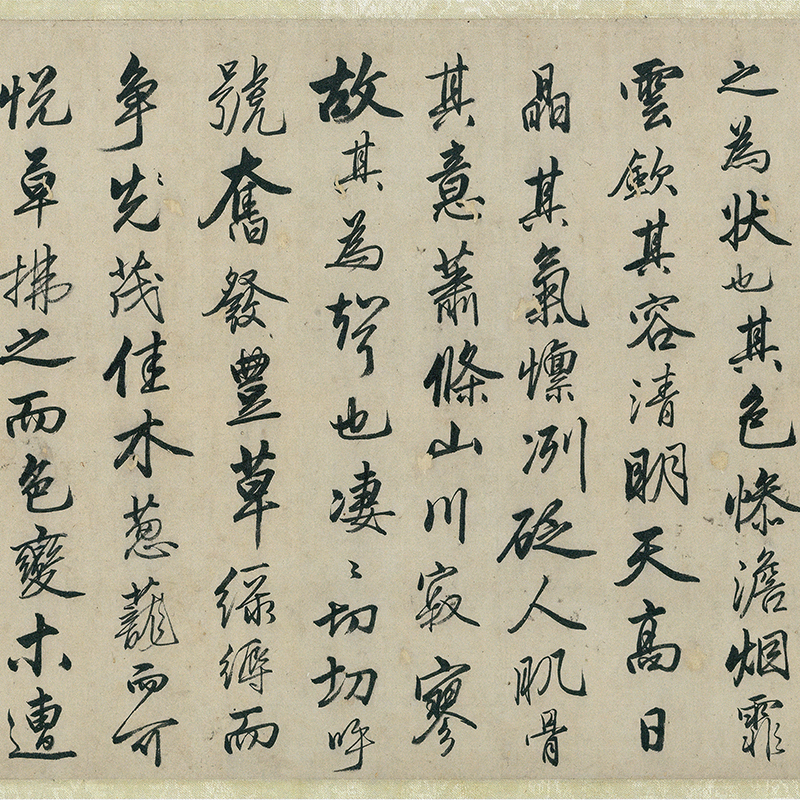 之為狀也其色慘澹烟霏
雲歛其容清明天高日
晶其氣慄冽砭人肌骨
其意蕭條山川寂寥
故其為聲也凄〻切切呼
號奮發豐草綠縟而
争先茂佳木葱蘢而可
悅草拂之而色變木遭